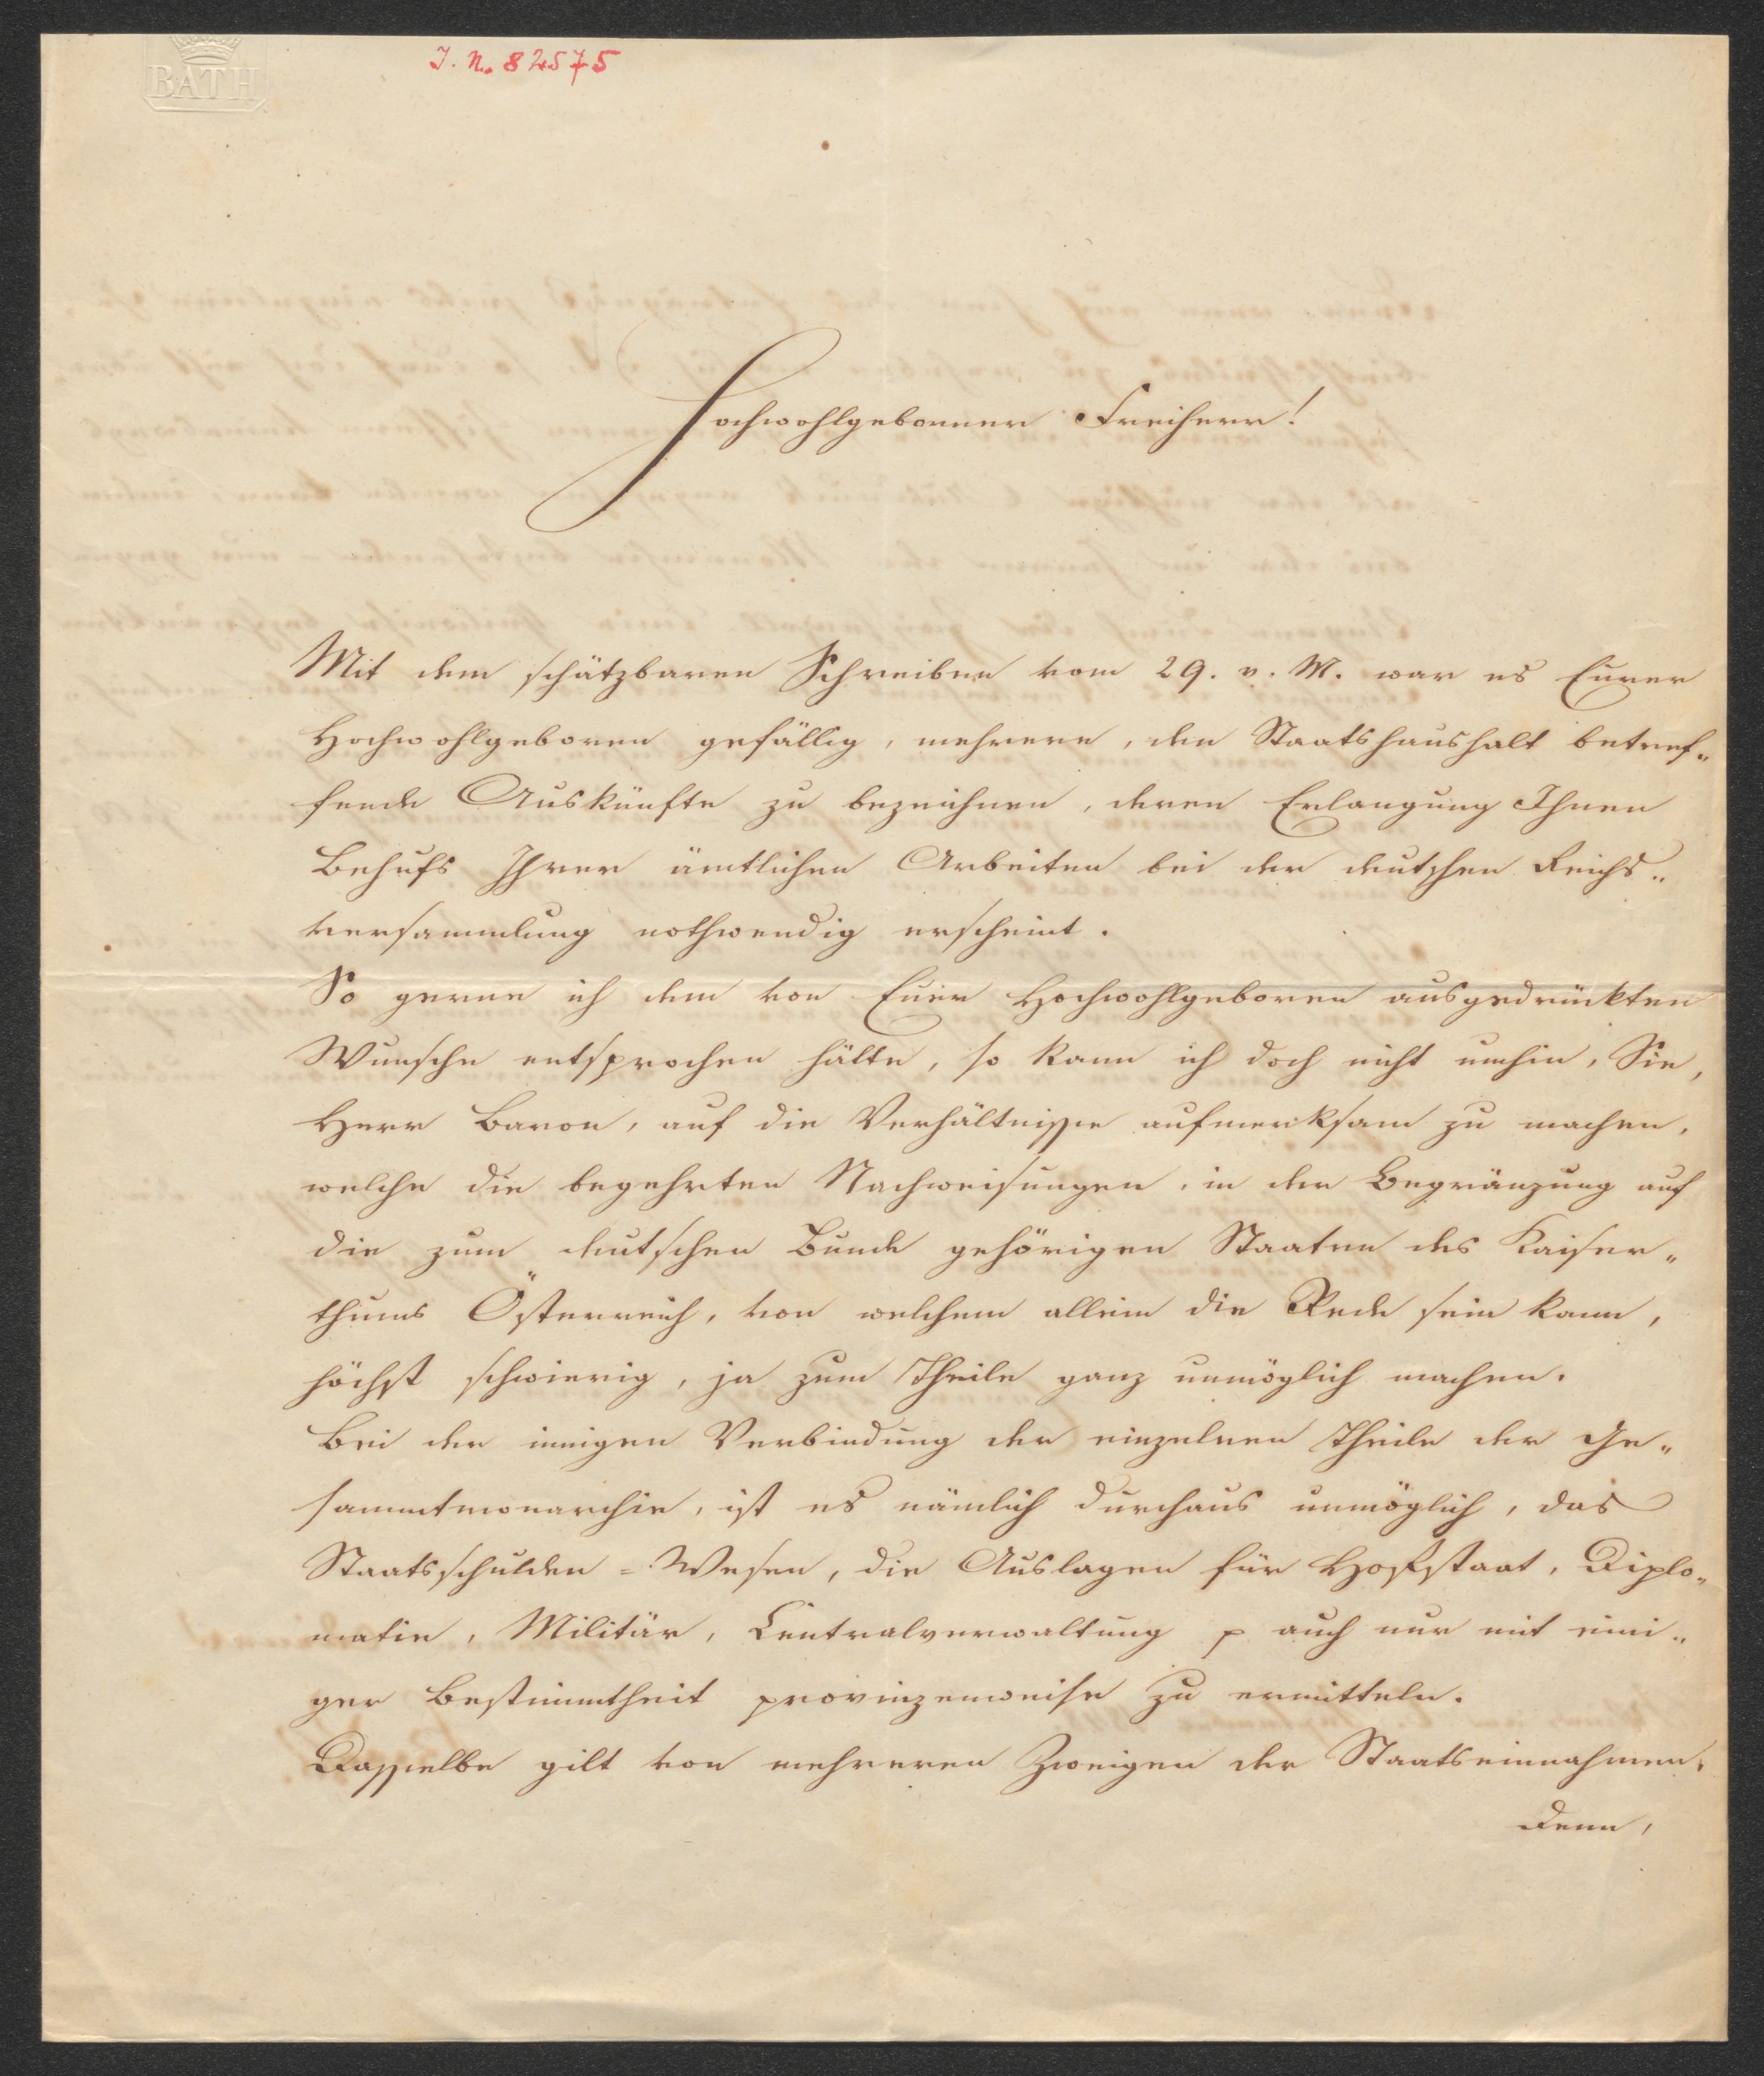 BATH
J. N. 82575
Hochwohlgeborner Freiherr!
Mit dem schätzbaren Schreiben vom 29. v. M. war es Eurer
Hochwohlgeboren gefällig, mehrere, den Staatshaushalt betref„
fende Auskünfte zu bezeichnen, deren Erlangung Ihnen
Behufs Ihrer ämtlichen Arbeiten bei der deutschen Reichs„
versammlung nothwendig erscheint.
So gerne ich dem von Euer Hochwohlgeboren ausgedrückten
Wunsche entsprochen hätte, so kann ich doch nicht umhin, Sie,
Herr Baron, auf die Verhältnisse aufmerksam zu machen,
welche die begehrten Nachweisungen, in der Begränzung auf
die zum deutschen Bunde gehörigen Staaten des Kaiser„
thums Österreich, von welchem allein die Rede sein kann,
höchst schwierig, ja zum Theile ganz unmöglich machen.
Bei der innigen Verbindung der einzelnen Theile der Ge„
sammtmonarchie, ist es nämlich durchaus unmöglich, das
Staatsschulden=Wesen, die Auslagen für Hofstaat, Diplo„
matie, Militär, Centralverwaltung p auch nur mit eini„
ger Bestimmtheit provinzenweise zu ermitteln.
Dasselbe gilt von mehreren Zweigen der Staatseinnahmen.
Denn,